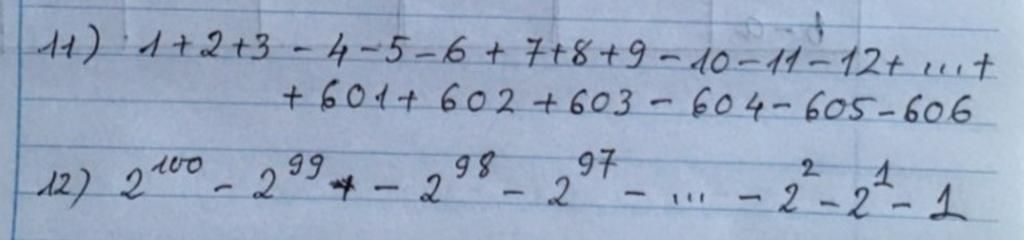 11) 1+2+3-4-5-6+7+8+9-10-11-12+...+
+601+602+603-604-605-606
12) 2^100 - 2^99 - 2^98 - 2^97 - ... - 2^2 - 2^1 - 1